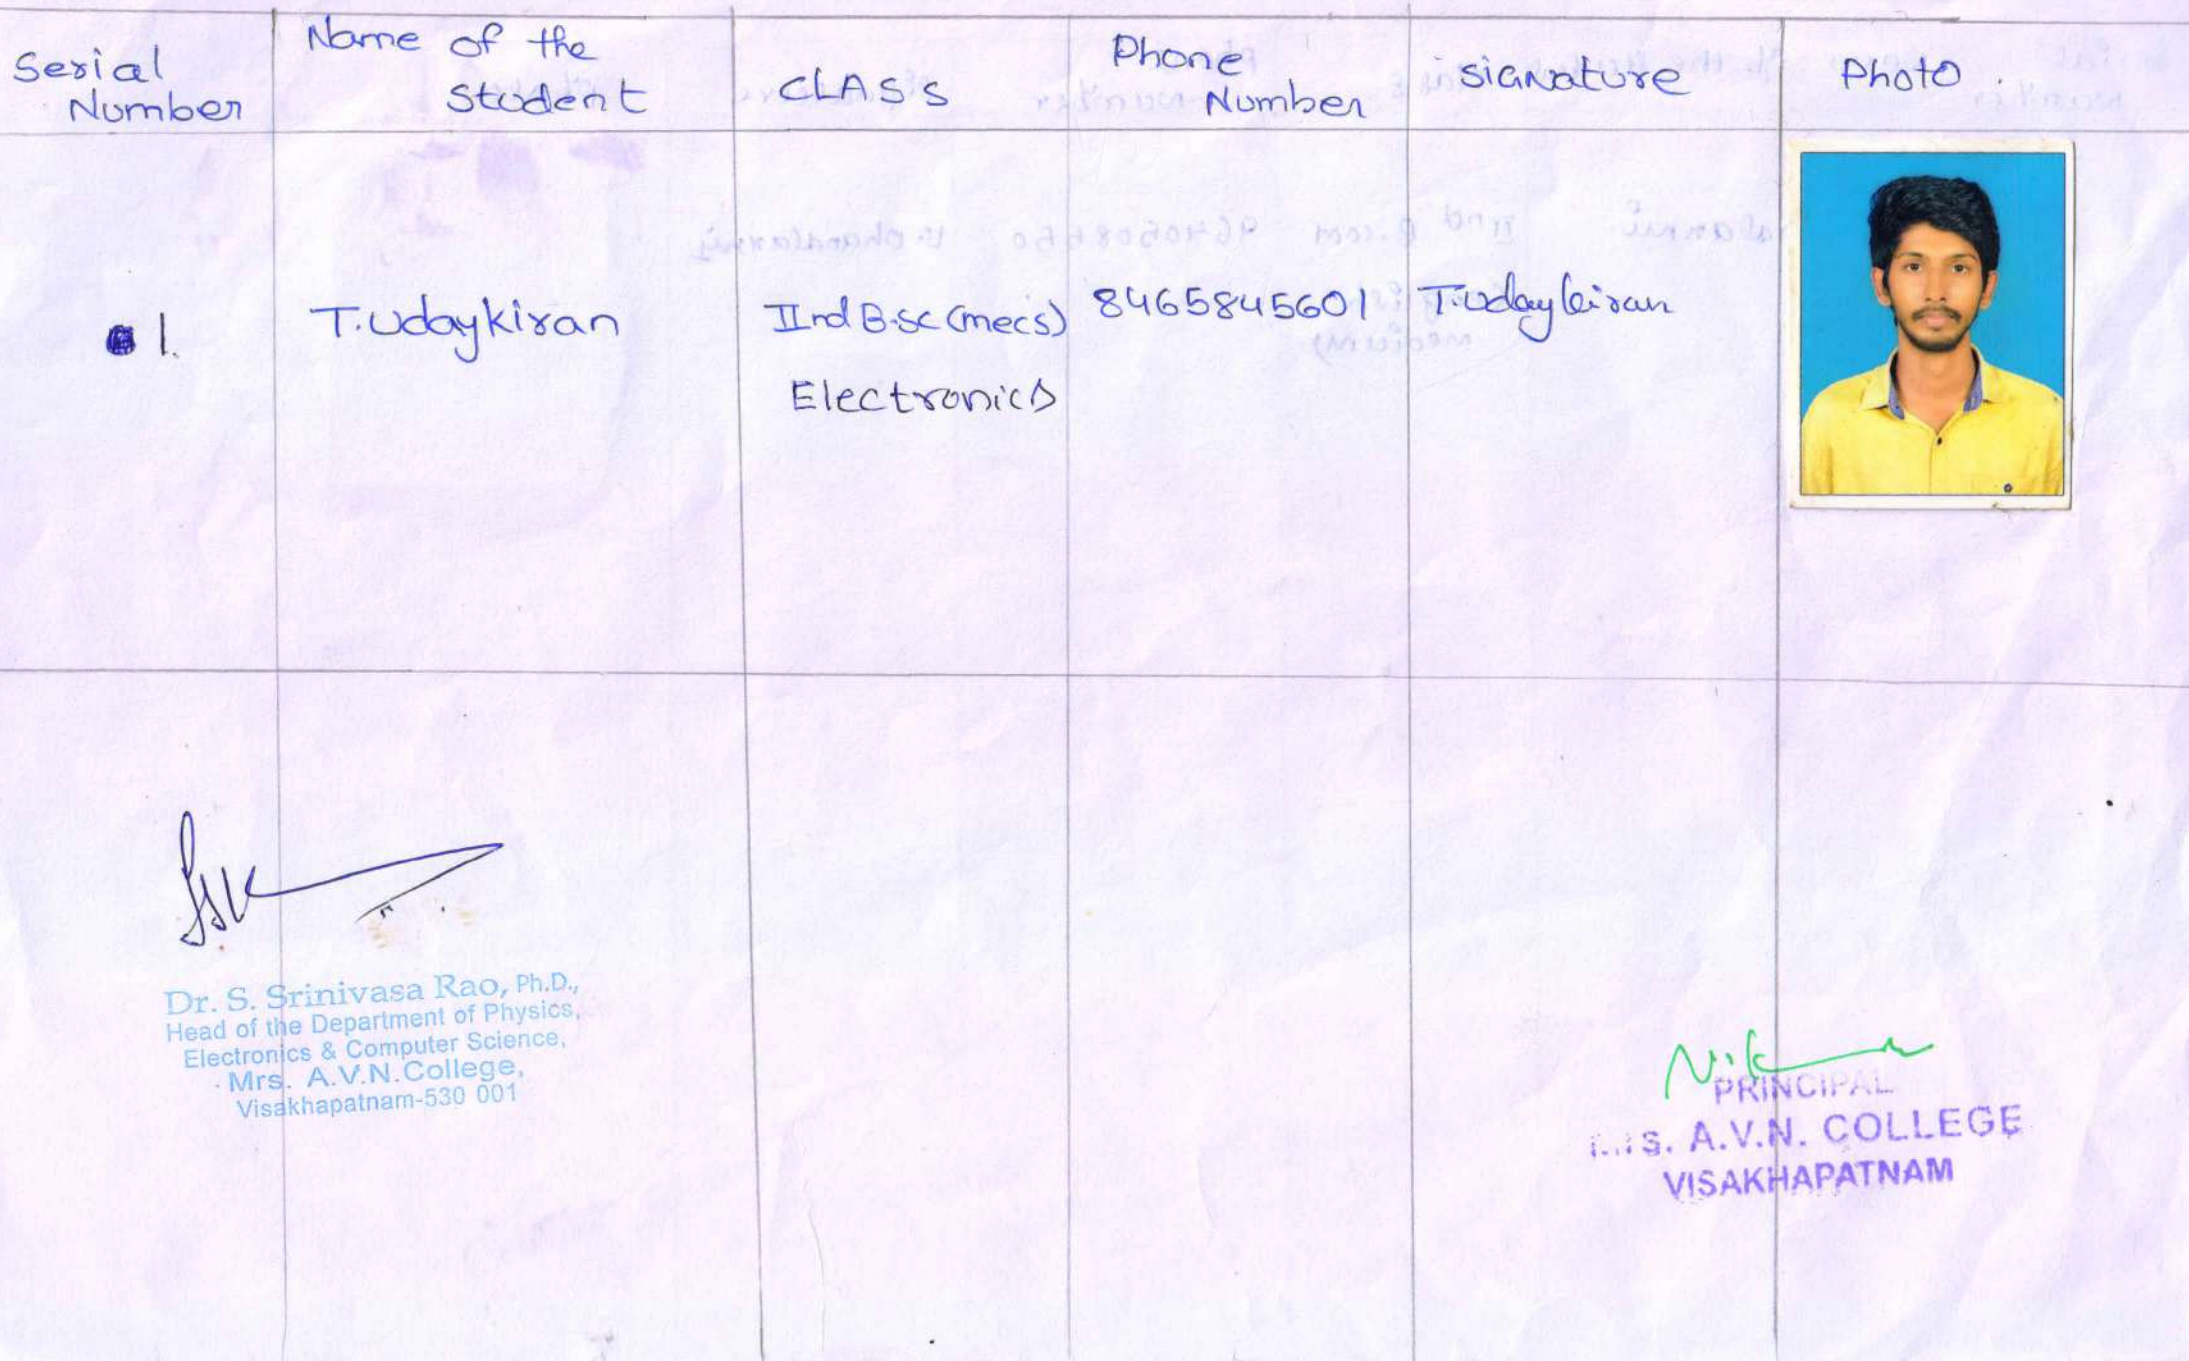 Serial Number
Name of the Student
CLASS
Phone Number
Signature
Photo
1.
T.Udaykiran
IInd B.sc (mecs)
Electronics
8465845601
T.Udaykiran
Dr. S. Srinivasa Rao, Ph.D.,
Head of the Department of Physics,
Electronics & Computer Science,
Mrs. A.V.N. College,
Visakhapatnam-530 001
PRINCIPAL
A.V.N. COLLEGE
VISAKHAPATNAM